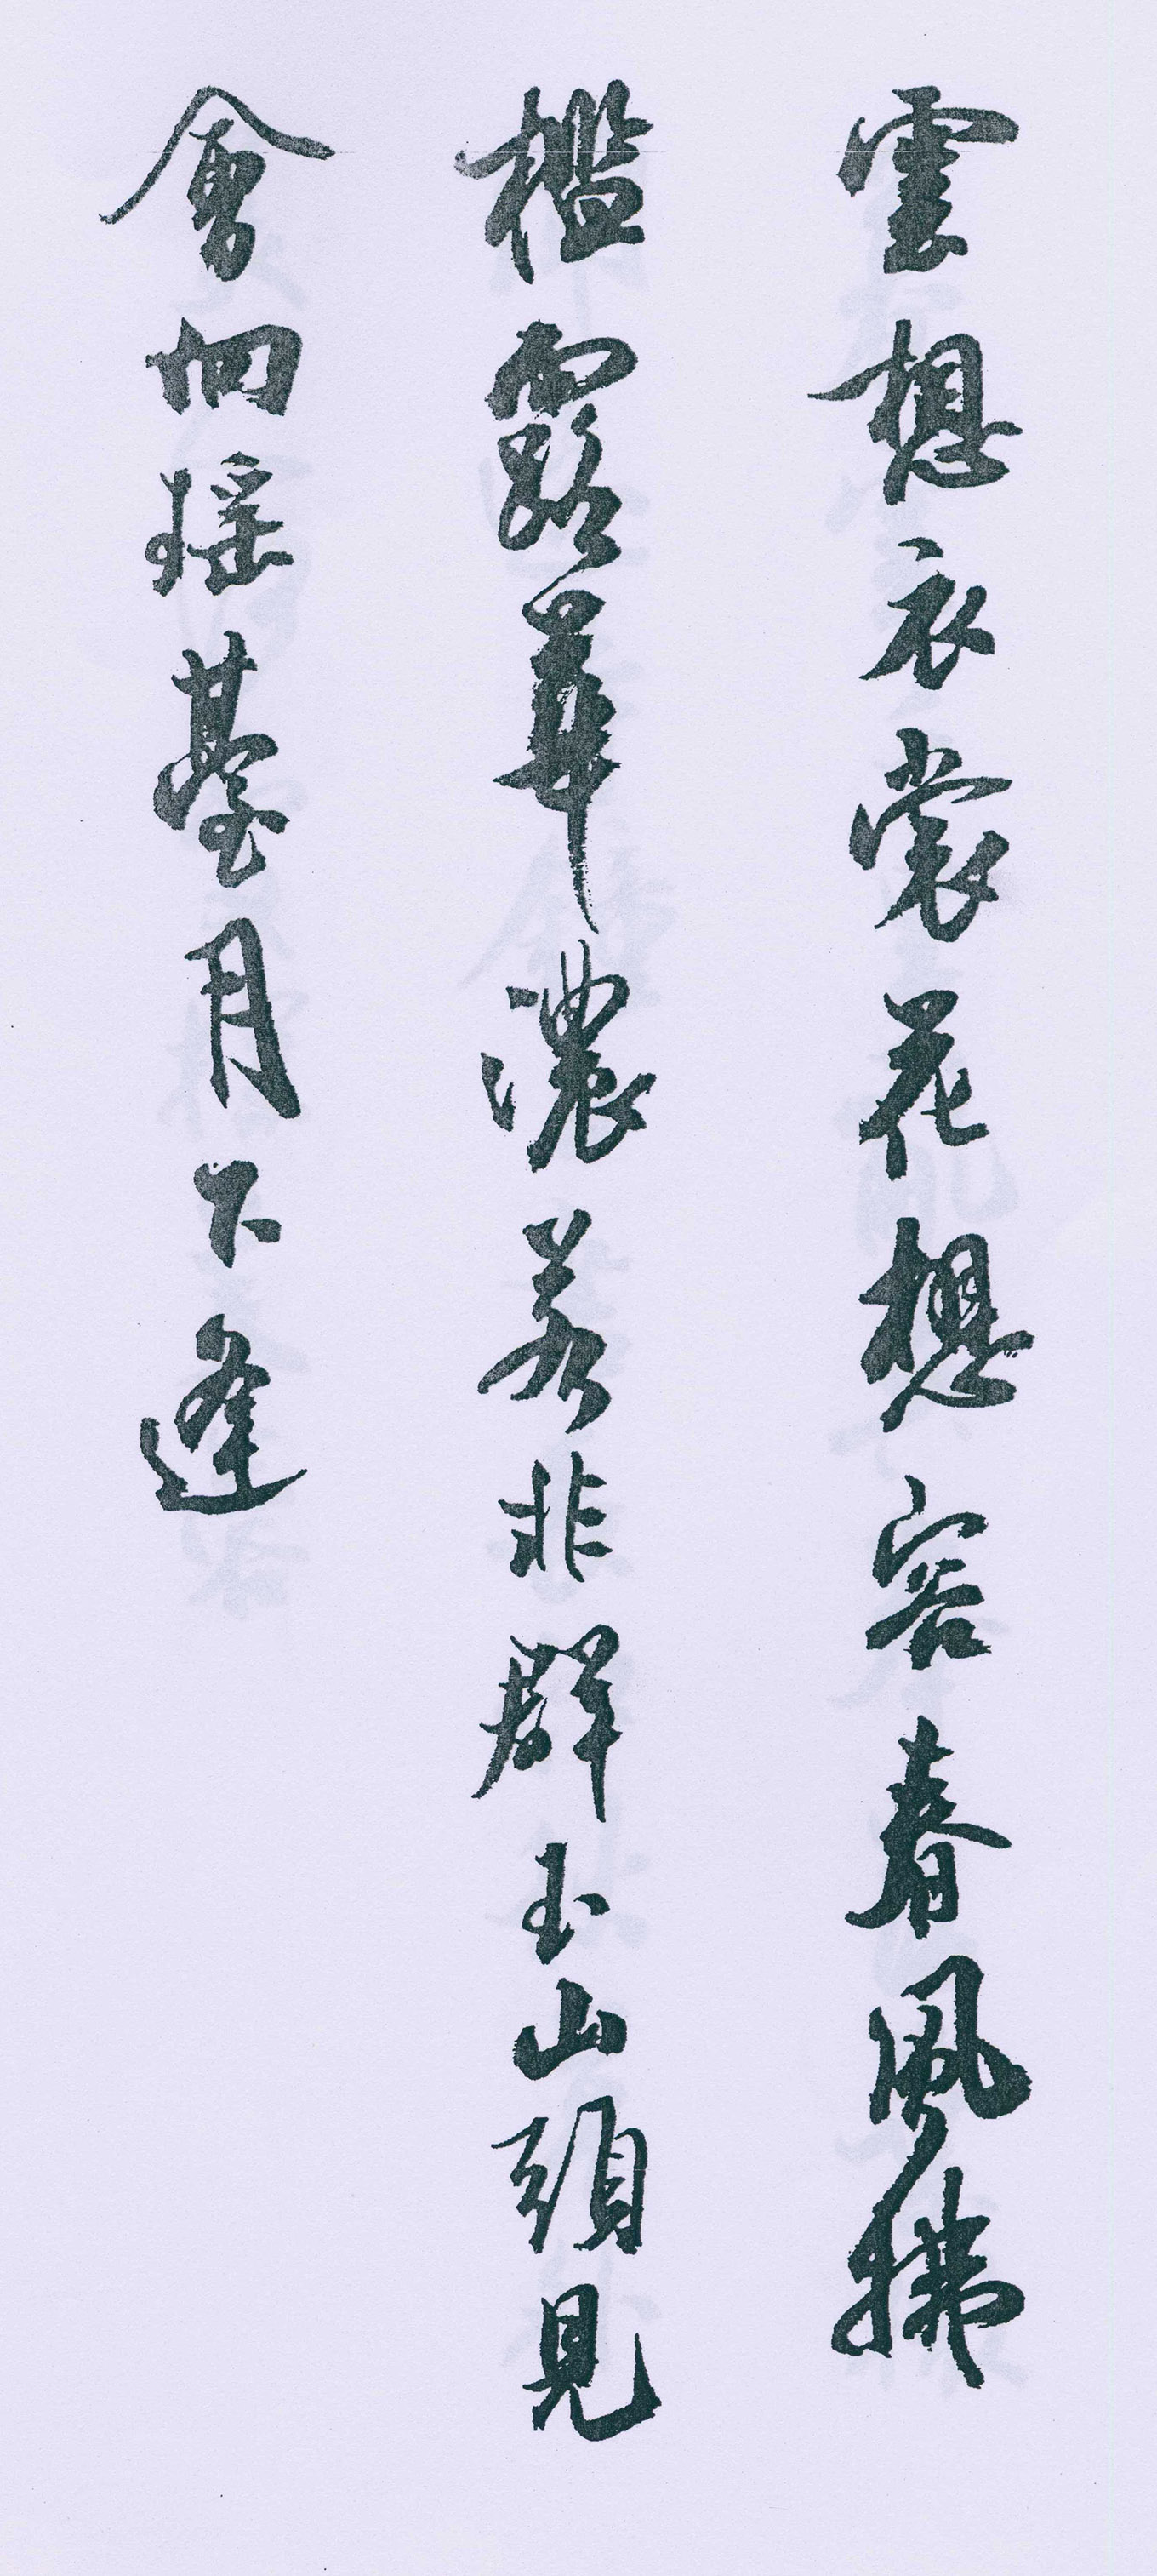 雲想衣裳花想容春風拂
檻露華濃若非群玉山頭見
會向瑶臺月下逢